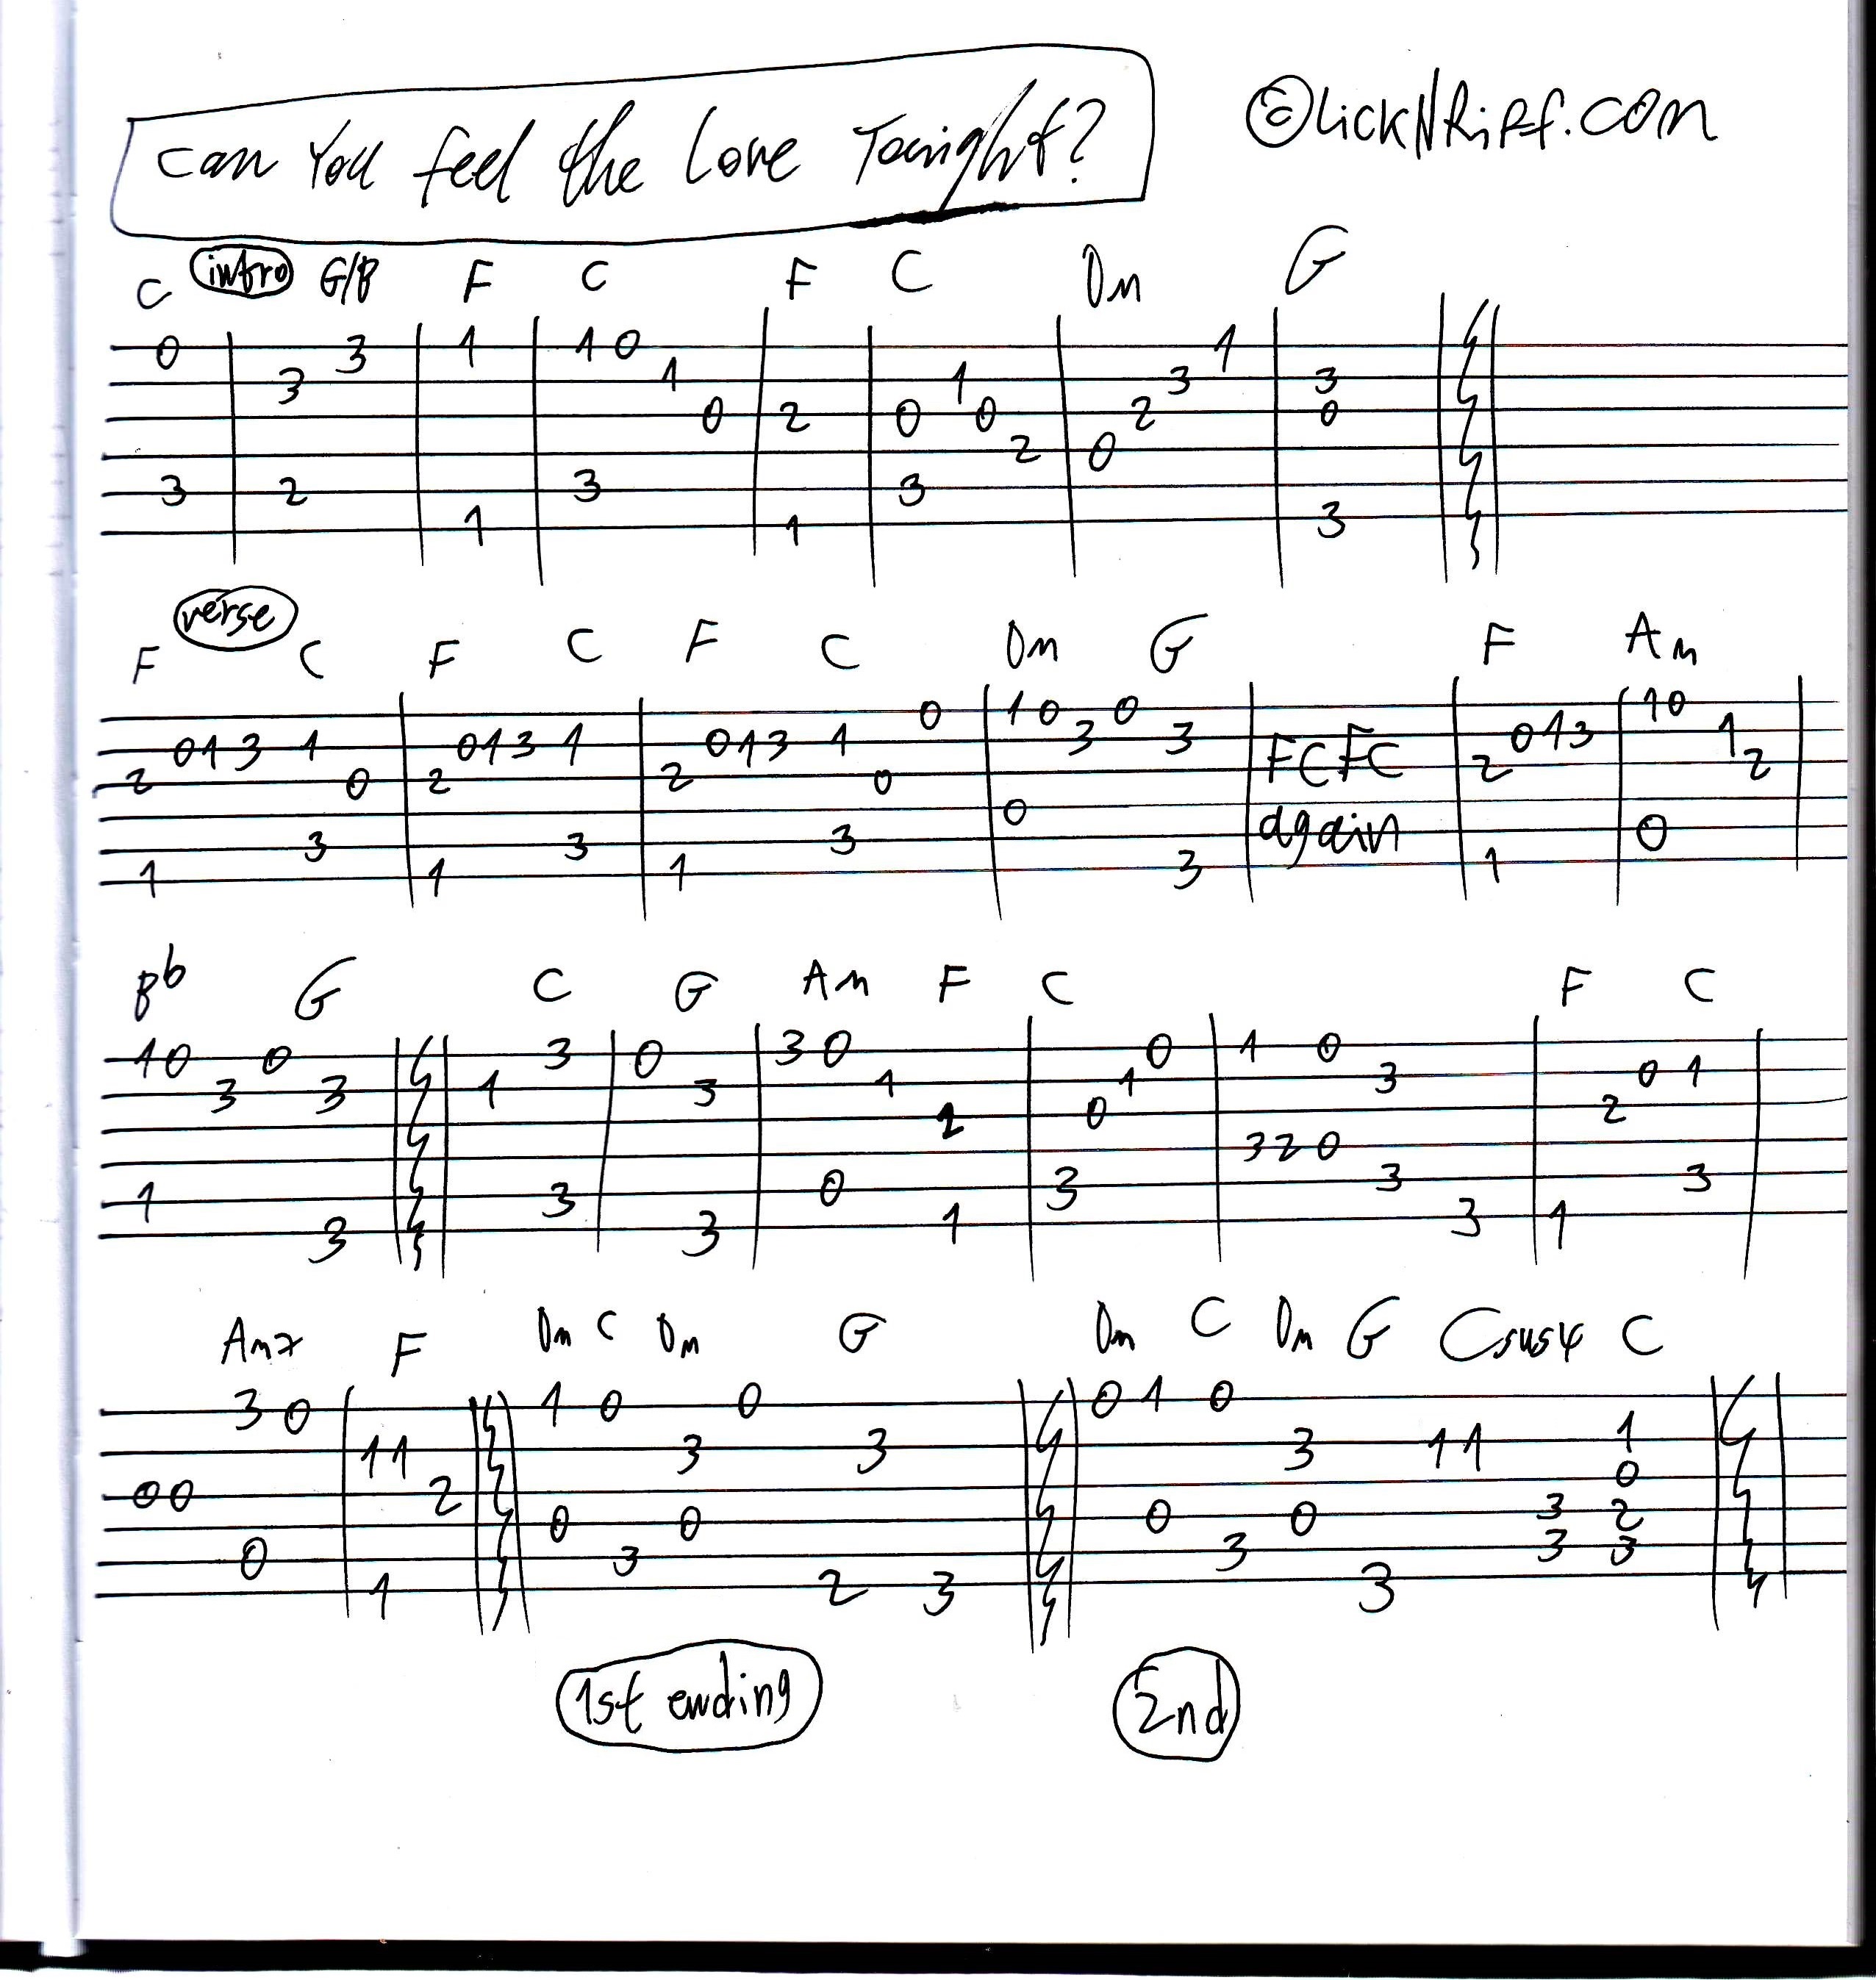 Can You Feel the Love Tonight?
©LickNRiff.com
C intro G/B F C F C Dm G
0 3 1 1 0 1
3 1 1 3 3
0 2 0 0 2 0
2 0
3 2 3 3
1 1 3
verse
F C F C F C Dm G F Am
0 1 0 0 1 0
0 1 3 1 0 1 3 1 0 1 3 1 3 3 0 1 3 1
2 0 2 0 2 0 FCFC 2 2
0
3 3 3 again 0
1 1 1 3 1
Bb G C G Am F C F C
1 0 0 3 0 3 0 0 1 0
3 3 1 3 1 1 3 0 1
2 0 2
3 2 0
1 3 0 3 3 3
3 3 1 3 1
Am7 F Dm C Dm G Dm C Dm G Csus4 C
3 0 1 0 0 0 1 0
1 1 3 3 3 1 1 1
0 0 2 0
0 0 0 0 3 2
0 3 3 3 3
1 2 3 3
1st ending 2nd